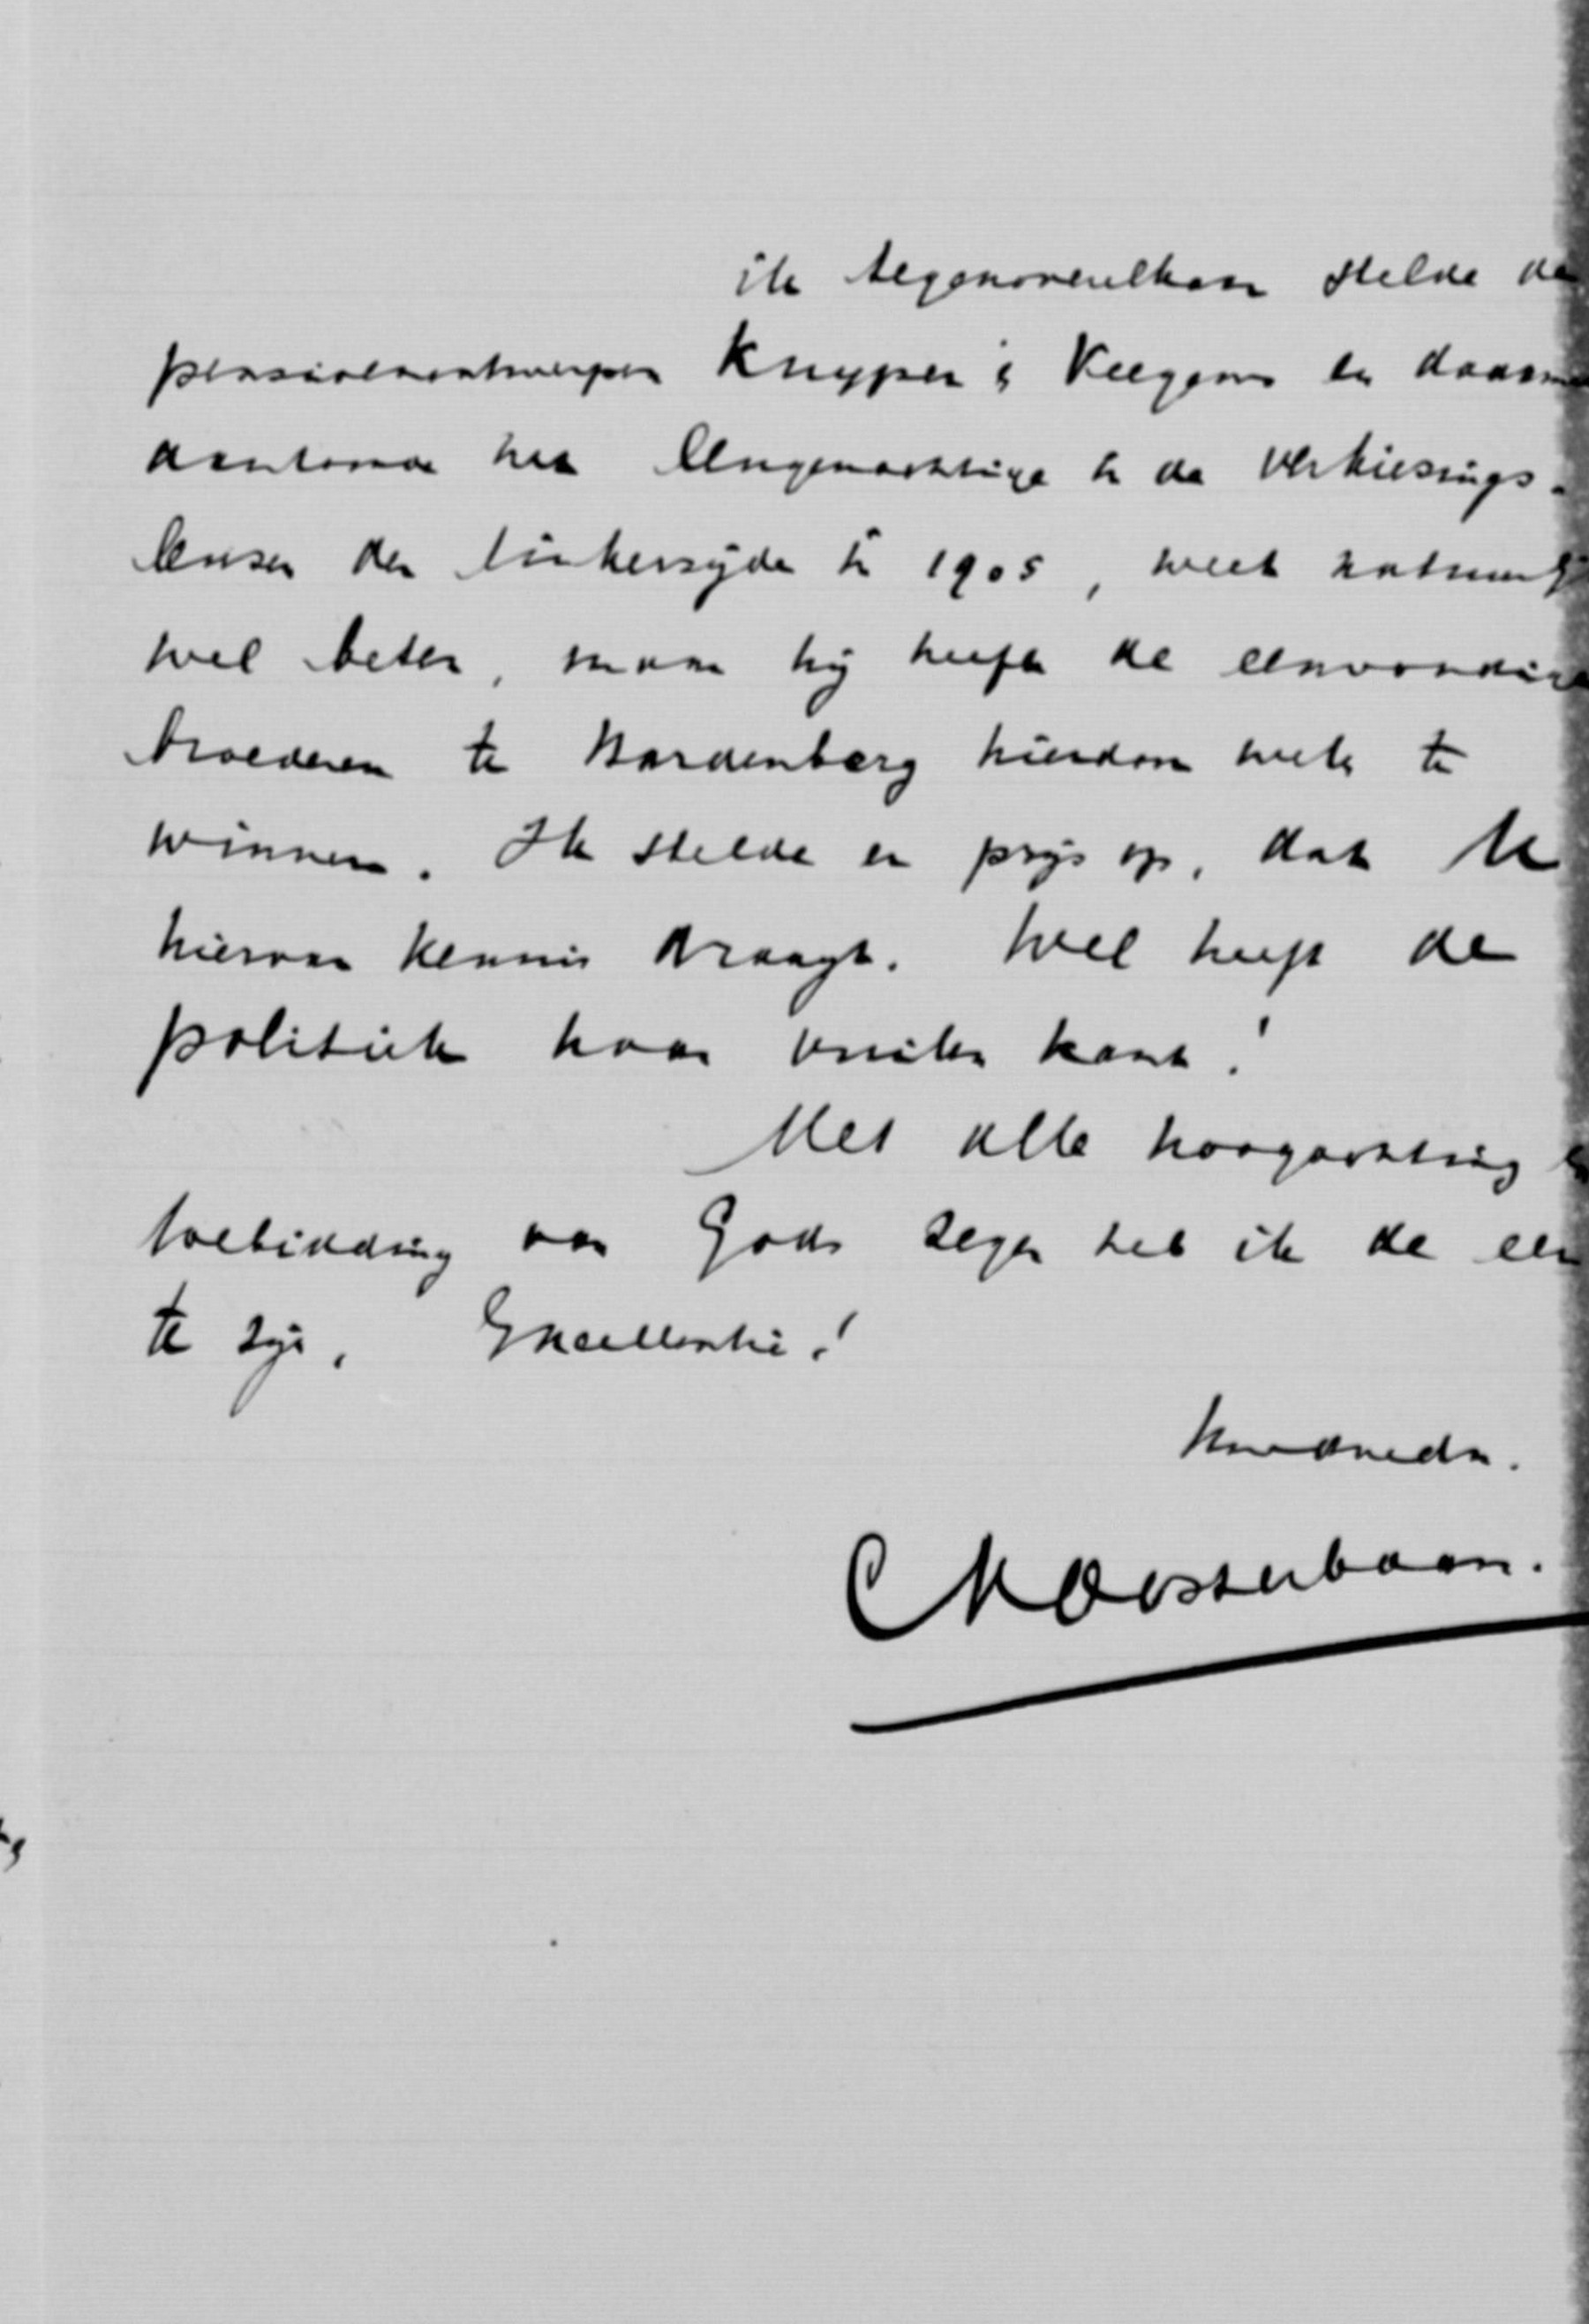 ik tegenoverelkaar stelde de
pensioenontwerpen Kuyper & Veegens en daarme
aantoonde het leugenachtige in de verkiezings-
leuzen der linkerzijde in 1905, weet natuurlij
wel beter, maar hij heeft de eenvoudige
broederen te Hardenberg hierdoor weten te
winnen. Ik stelde er prijs op, dat U
hiervan kennis draagt. Wel heeft de
politiek haar vuilen kant!
Met alle hoogachting en
toebidding van Gods zegen heb ik de eer
te zijn, Excellentie!
Uw dw. dn.
C M Oosterbaan.